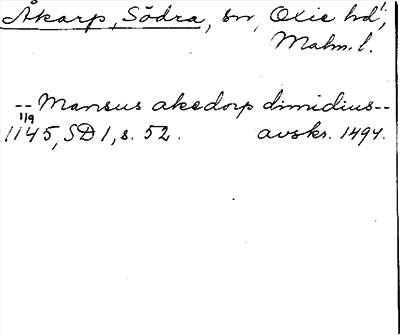 Åkarp, Södra, sn, Oxie hd,
Malm. l.
-- Mansus akedorp dimidius --
1/9
1145, SD 1, s. 52. avskr. 1494.